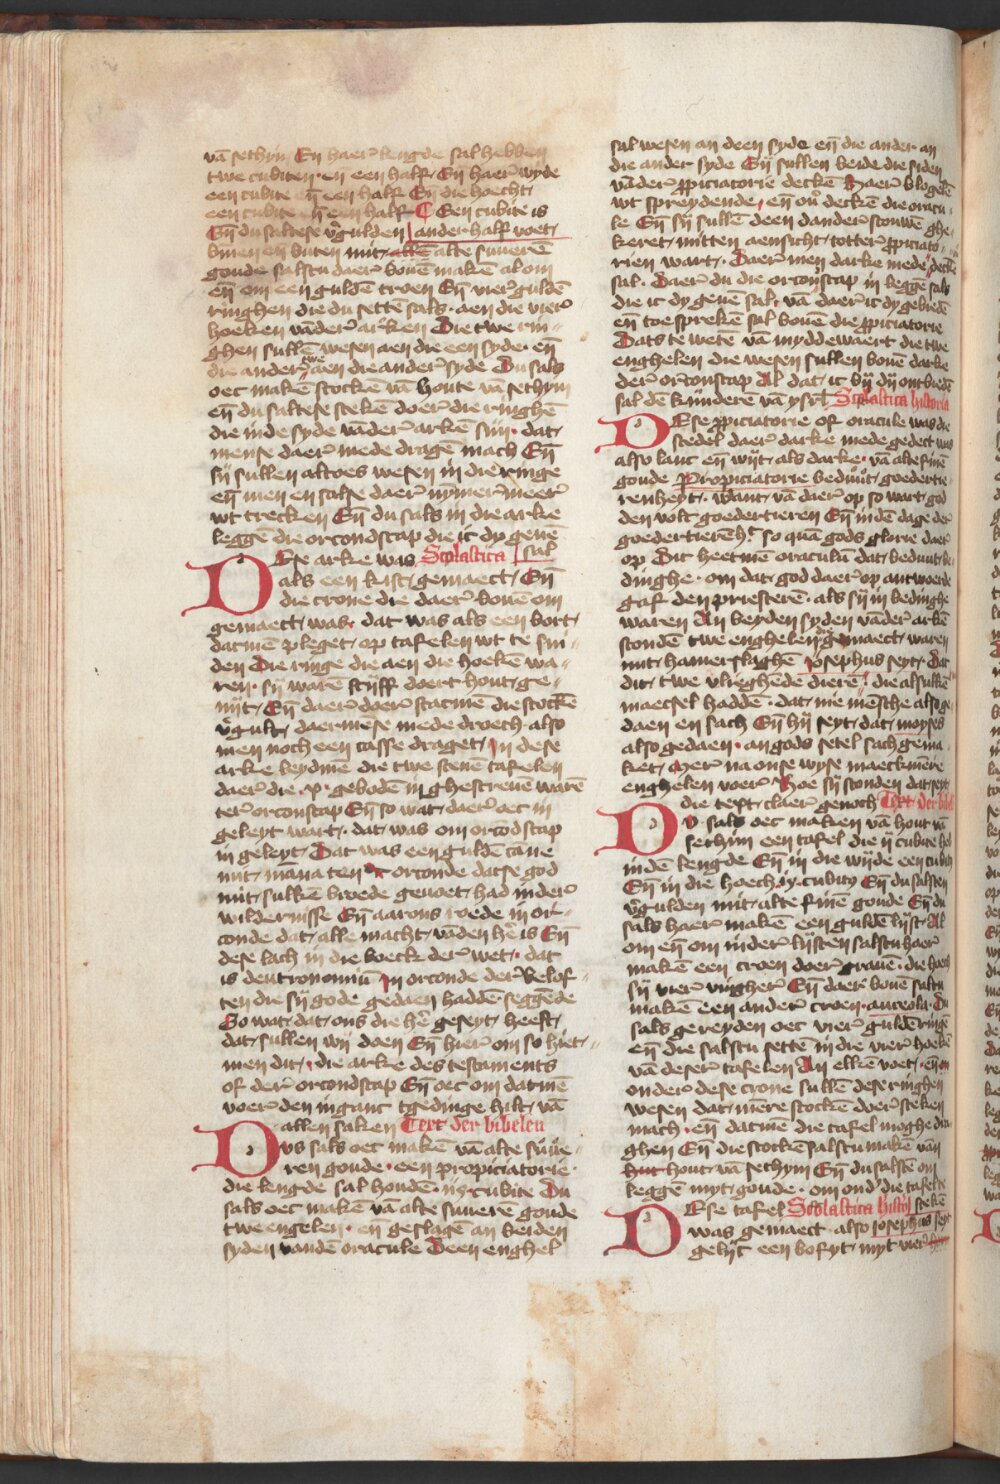 vā sethim Eñ haer lengde sal hebben
twe cubiten · en een half · Eñ haer wyde
een cubite eñ een half Eñ die hoecht
een cubite eñ een half C Een cubite is
Eñ du saltese vgulden | ander half voet
binen eñ buten mit allē alte suuerē
goude salstu daer bouē makē al om
eñ om een guldē croen Eñ vier guldē
ringhen die du settē sals · aen die vier
hoeken vāder arken Die twe rin-
ghen sullē wesen aen die een syde · eñ
die ander twe aen die ander syde Du sals
oec makē stockē vā houte vā sethym
eñ du saltese stekē doer die ringhē
die in de syde vāder arkē sijn · dat
mense daer mede dragē mach Eñ
sij sullen altoes wesen in die ringe
eñ men en salse daer nymmermeer
wt trecken Eñ du sals in die arke
leggē die orcondscap die ic dy geuē
Dese arke was Scolastica | sal
als een kist gemaect Eñ
die crone die daer bouē om
gemaect was · dat was als een bort
datmē pleget op tafelen wt te sni-
den Die ringe die aen die hoekē wa-
ren · sij warē styff doert hout ge-
nijt Eñ daer doer stacmē die stockē
vgult daermese mede droech · also
men noch een casse draget In dese
arke leydmē die twe stenē tafelen
daer die · x · gebodē in ghescreuē warē
ter orconstap Eñ so wat daer oec in
geleyt wart · dat was om orcōdstap
in geleyt Dat was een guldē cāne
mit mana ten orconde datse god
mit sulkē broede geuoet had inder
wildernisse Eñ aarons roede in or-
conde dat alle macht vādē hē is Eñ
dese lach in die boeck der wet · dat
is deutronomiū In orconde der belof-
ten die sij gode gedaen haddē · seggēde
So wat dat ons die hē geseyt heeft
dat sullen wij doen Eñ hier om so hiet-
men dit · die arke des testaments
of der orcondscap Eñ oec om datmē
voer den ingant tgedinge hilt vā
allen saken Text der bibelen
Dus sals oec makē vā alte suue-
ren goude · een propiciatorie ·
die lengde sal houdē · ijꝫ · cubite Du
sals oec makē vā alte suueren goude
twe engelen · eñ geslagē an beiden
syden vanden oracule Deen enghel
sal wesen an deen syde eñ die ander an
die ander syde Eñ sullen beide die siden
vāder ppiciatorie deckē Haer vlogelē
wt spreydende · eñ ou deckē die oracu-
le Eñ sij sullē deen dander scouwē ghe-
keret mitten aensicht totter ppiciato-
rien wart · Daermen darke mede deckē
sal · Daer du die orconstap in legge sals
die ic dy geuē sal · vā daer ic dy gebiedē
eñ toe sprekē sal bouē die ppiciatorie
Dats te wetē vā myddewaert die twe
enghelen die wesen sullen bouē darke
der orconstap Al dat ic bij dij ontbiedē
sal dē kinderē vā ysrl Scolastica historia
Dese ppiciatorie of oracule was die
stedel daer darke mede gedect was
also lanc eñ wijt als darke · vā alte finē
goude Propiciatorie beduut goedertie-
renheyt · want vā daer op so wart god
den volc goedertieren Eñ indē dage der
goedertierēh. so quā gods glorie daer
op Dit heetmē oraculū dat beduut be-
dinghe · om dat god daer op antwoerde
gaf den priesterē · als sij in bedinghe
waren An beyden syden vāder arkē
stondē twe enghelen gemaect waren
mit hamer slaghē Josephus seyt Dat
dit twe vlieghēde dierē die alsulkē
maecsel haddē · dat nie mēsche also ge-
daen en sach Eñ hij seyt dat moyses
also gedaen · an gods setel sach gema-
ket Mer na onse wyse maectmēre
enghelen voer Hoe sij stonden dat seyt
die text claer genoch Text der bibel
Du sals oec maken vā hout vā
sethim een tafel die ij cubite heb
indē lengde Eñ in die wijde een cubity
Eñ in die hoech ijꝫ cubity Eñ du salsten
vgulden mit alte finē goude Eñ du
sals haer makē een guldē lijst Al
om eñ om inder lijsten salstu haer
makē een croen doer grauē · die hoech
sij vier vingher Eñ daer bouē saltu
makē een ander croen · aureola · Du
sals gereyden oec vier guldē ringē
eñ die salstu settē in die vier hoeken
vā deser tafelen An elkē voet · een en
onder dese crone sullē dese ringhen
wesen dat mēre stockē doer steken
mach · eñ datmē die tafel moghe dra-
ghen Eñ die stockē salstu makē van
hut hout vā sethym Eñ du salstē om
leggē myt goude · om ond die tafel te
Dese tafel Scolastica histor | stekē
was gemaect · also iosephus seyt
gelijc een bofyt myt vier